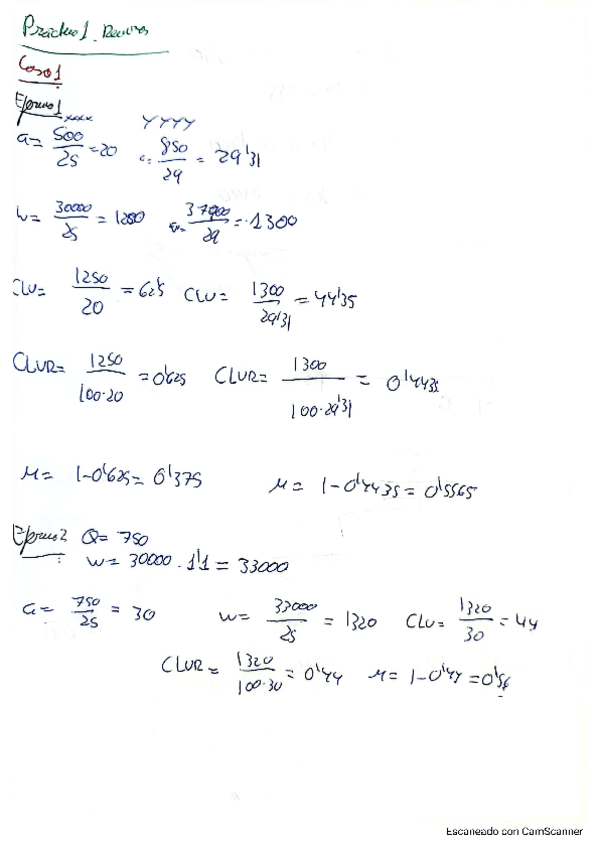 Práctica 1. Recursos
Caso 1
Ejercicio 1
xxxx YYYY
a = 500/25 = 20 a = 850/29 = 29'31
w = 30000/25 = 1200 w = 37900/29 = 1300
CLU = 1250/20 = 62'5 CLU = 1300/29'31 = 44'35
CLUR = 1250/100·20 = 0'625 CLUR = 1300/100·29'31 = 0'4435
μ = 1-0'625 = 0'375 μ = 1-0'4435 = 0'5565
Ejercicio 2 Q = 750
w = 30000 · 1'1 = 33000
a = 750/25 = 30 w = 33000/25 = 1320 CLU = 1320/30 = 44
CLUR = 1320/100·30 = 0'44 μ = 1-0'44 = 0'56
Escaneado con CamScanner